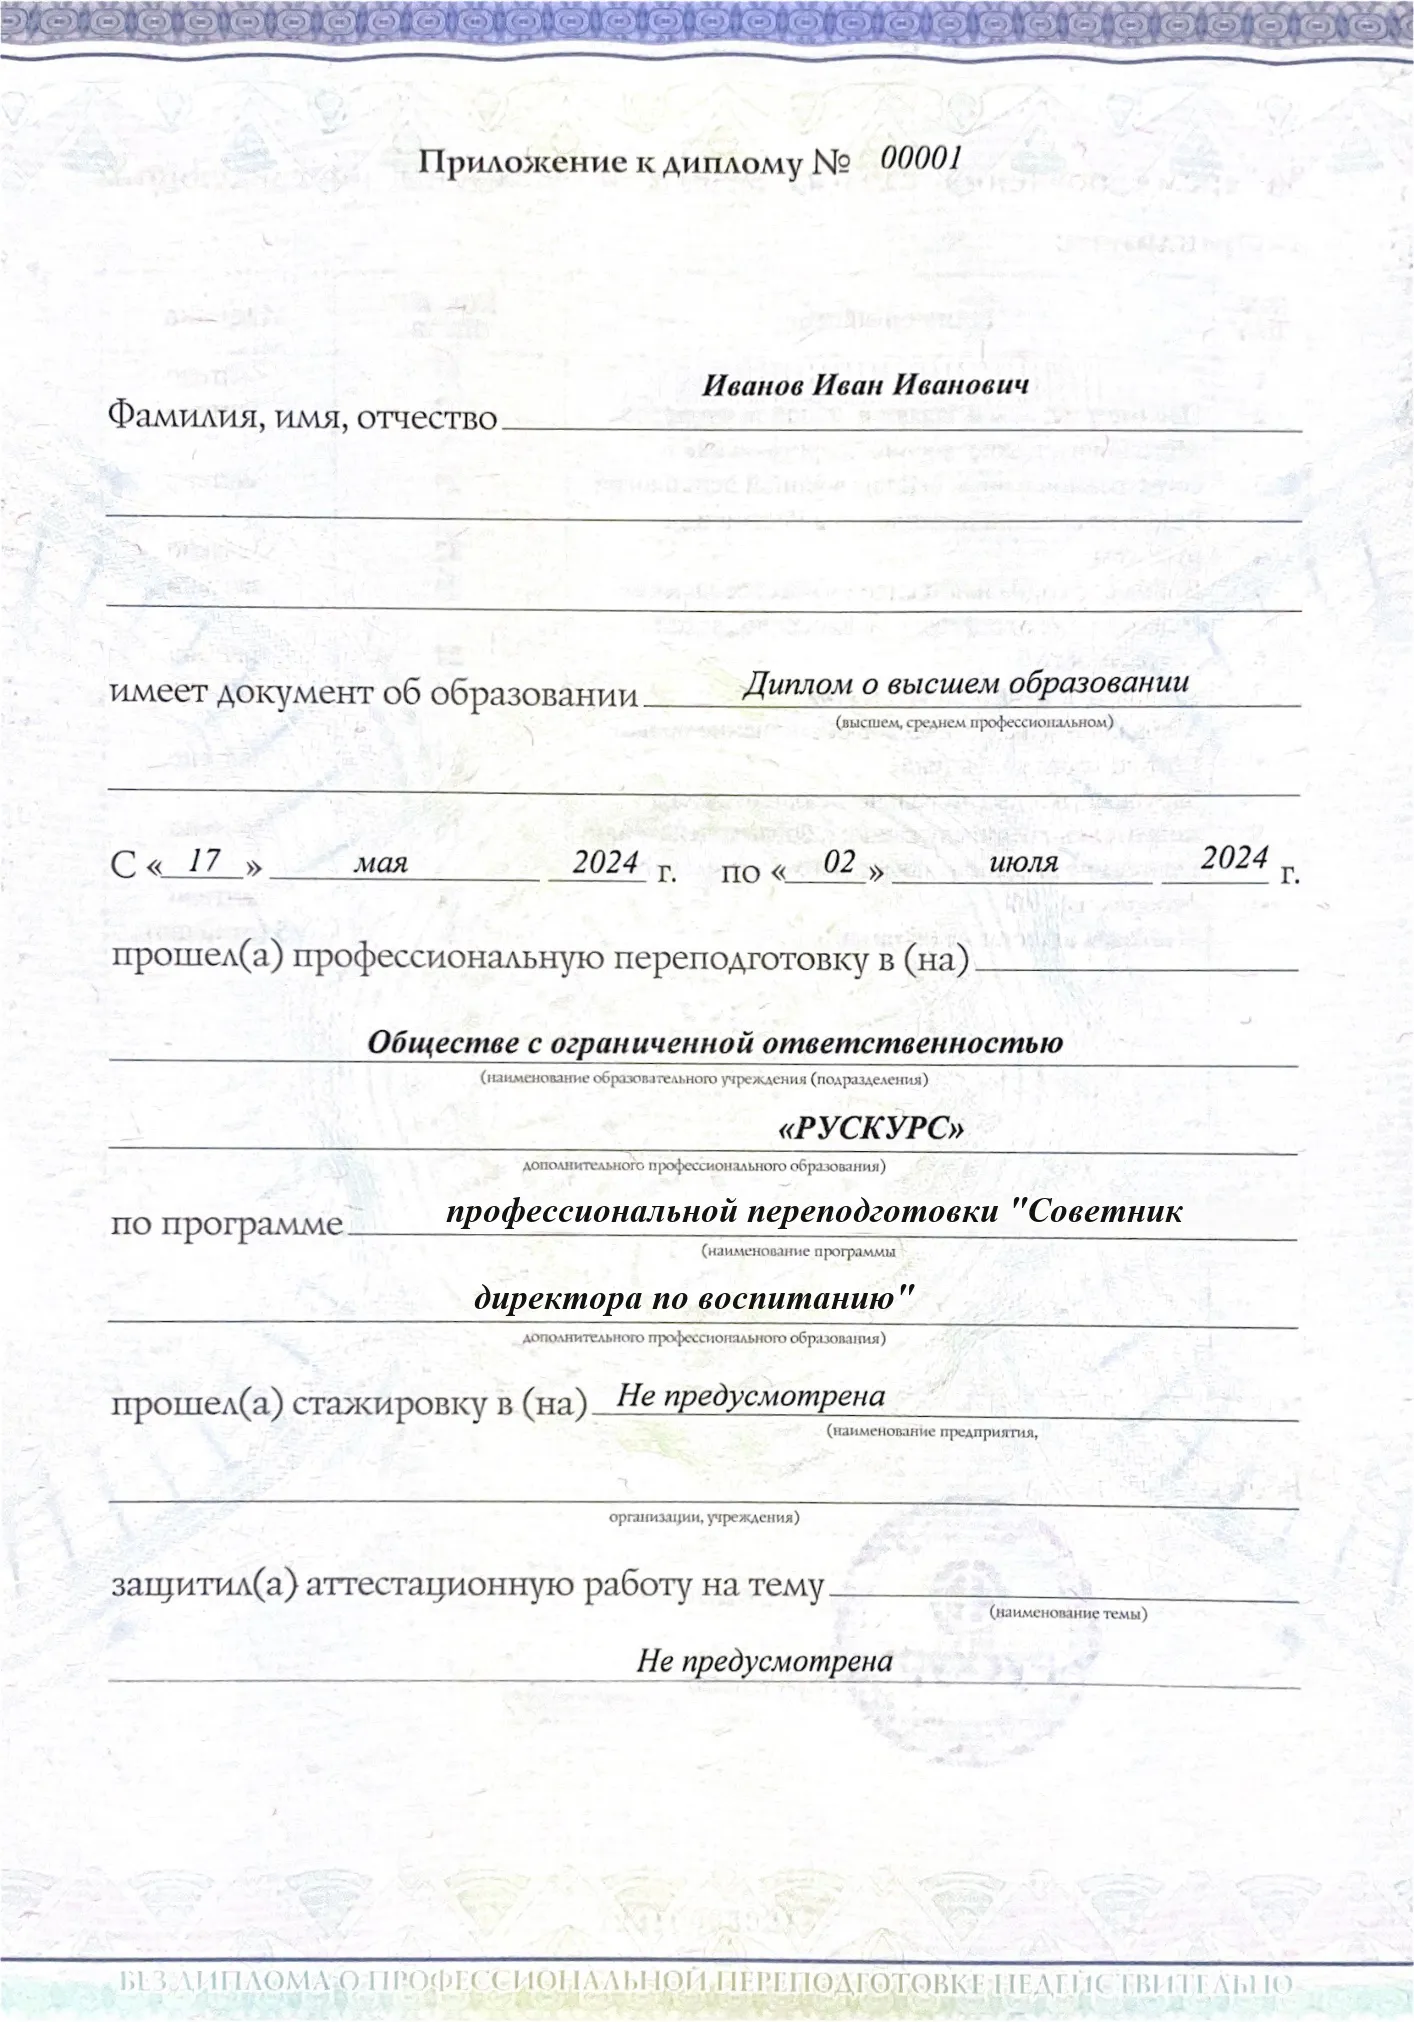 Приложение к диплому № 00001
Иванов Иван Иванович
Фамилия, имя, отчество
имеет документ об образовании Диплом о высшем образовании
(высшем, среднем профессиональном)
С « 17 » мая 2024 г. по « 02 » июля 2024 г.
прошел(а) профессиональную переподготовку в (на)
Обществе с ограниченной ответственностью
(наименование образовательного учреждения (подразделения)
«РУСКУРС»
дополнительного профессионального образования)
по программе профессиональной переподготовки "Советник
(наименование программы
директора по воспитанию"
дополнительного профессионального образования)
прошел(а) стажировку в (на) Не предусмотрена
(наименование предприятия,
организации, учреждения)
защитил(а) аттестационную работу на тему
(наименование темы)
Не предусмотрена
БЕЗ ДИПЛОМА О ПРОФЕССИОНАЛЬНОЙ ПЕРЕПОДГОТОВКЕ НЕДЕЙСТВИТЕЛЬНО